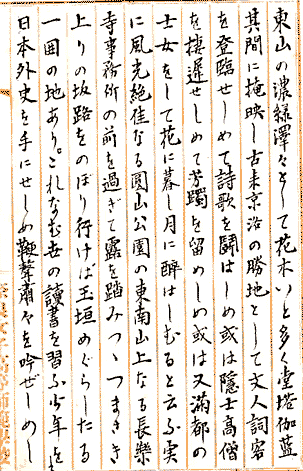 東山の濃緑澤々として花木いと多く堂塔伽藍
其間に掩映し古来京洛の勝地として文人詞客
を登臨せしめて詩歌を闘はしめ或は隠士高僧
を棲遅せしめて芳躅を留めしめ或は又満都の
士女をして花に暮し月に酔はしむると云ふ実
に風光絶佳なる圓山公園の東南山上なる長樂
寺事務所の前を過ぎて露を踏みつゝつまさき
上りの坂路をのぼり行けば玉垣めぐらしたる
一囲の地ありこれなむ世の讀書を習ふ少年を
日本外史を手にせしめ鞭聲粛々を吟ぜしめし